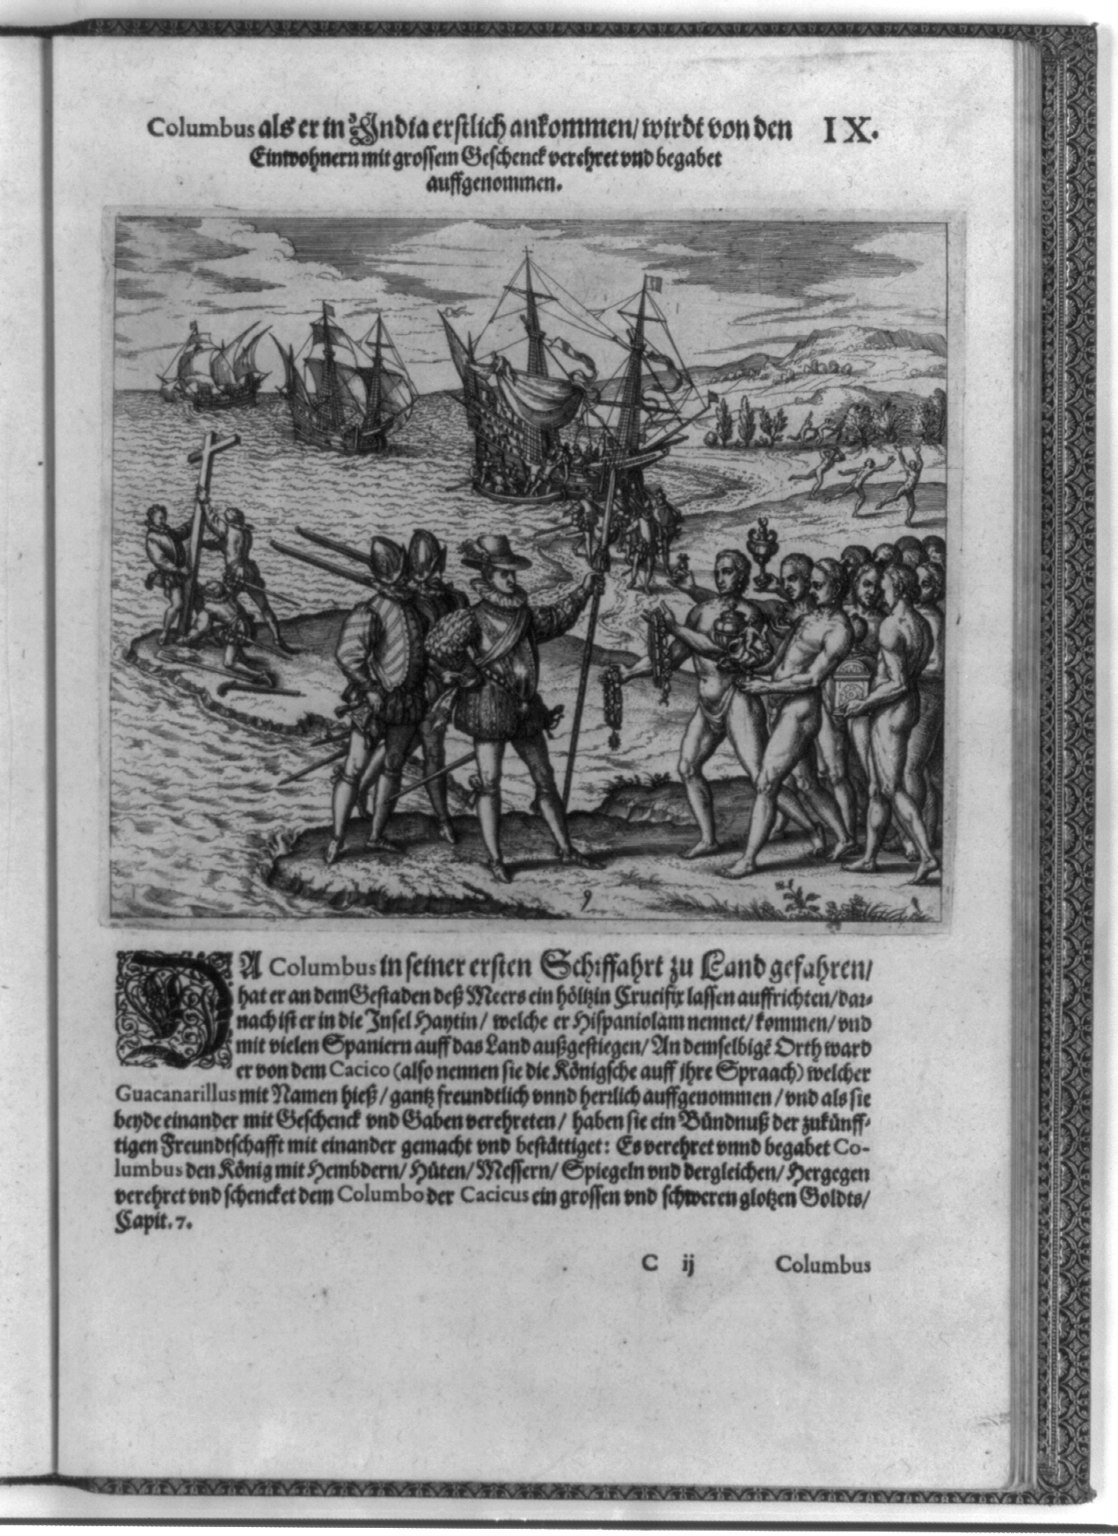 Columbus als er in India erstlich ankommen/ wirdt von den IX.
Einwohnern mit grossem Geschenck verehret vnd begabet
auffgenommen.
9
DA Columbus in seiner ersten Schiffahrt zu Land gefahren/
hat er an dem Gestaden deß Meers ein höltzin Crucifix lassen auffrichten/ dar-
nach ist er in die Insel Haytin/ welche er Hispaniolam nennet/ kommen/ vnd
mit vielen Spaniern auff das Land außgestiegen/ An demselbigẽ Orth ward
er von dem Cacico (also nennen sie die Königsche auff jhre Spraach) welcher
Guacanarillus mit Namen hieß/ gantz freundtlich vnnd herrlich auffgenommen/ vnd als sie
beyde einander mit Geschenck vnd Gaben verehreten/ haben sie ein Bündnuß der zukünff-
tigen Freundtschafft mit einander gemacht vnd bestättiget: Es verehret vnnd begabet Co-
lumbus den König mit Hembdern/ Hüten/ Messern/ Spiegeln vnd dergleichen/ Hergegen
verehret vnd schencket dem Columbo der Cacicus ein grossen vnd schweren glotzen Goldts/
Capit. 7.
C ij Columbus